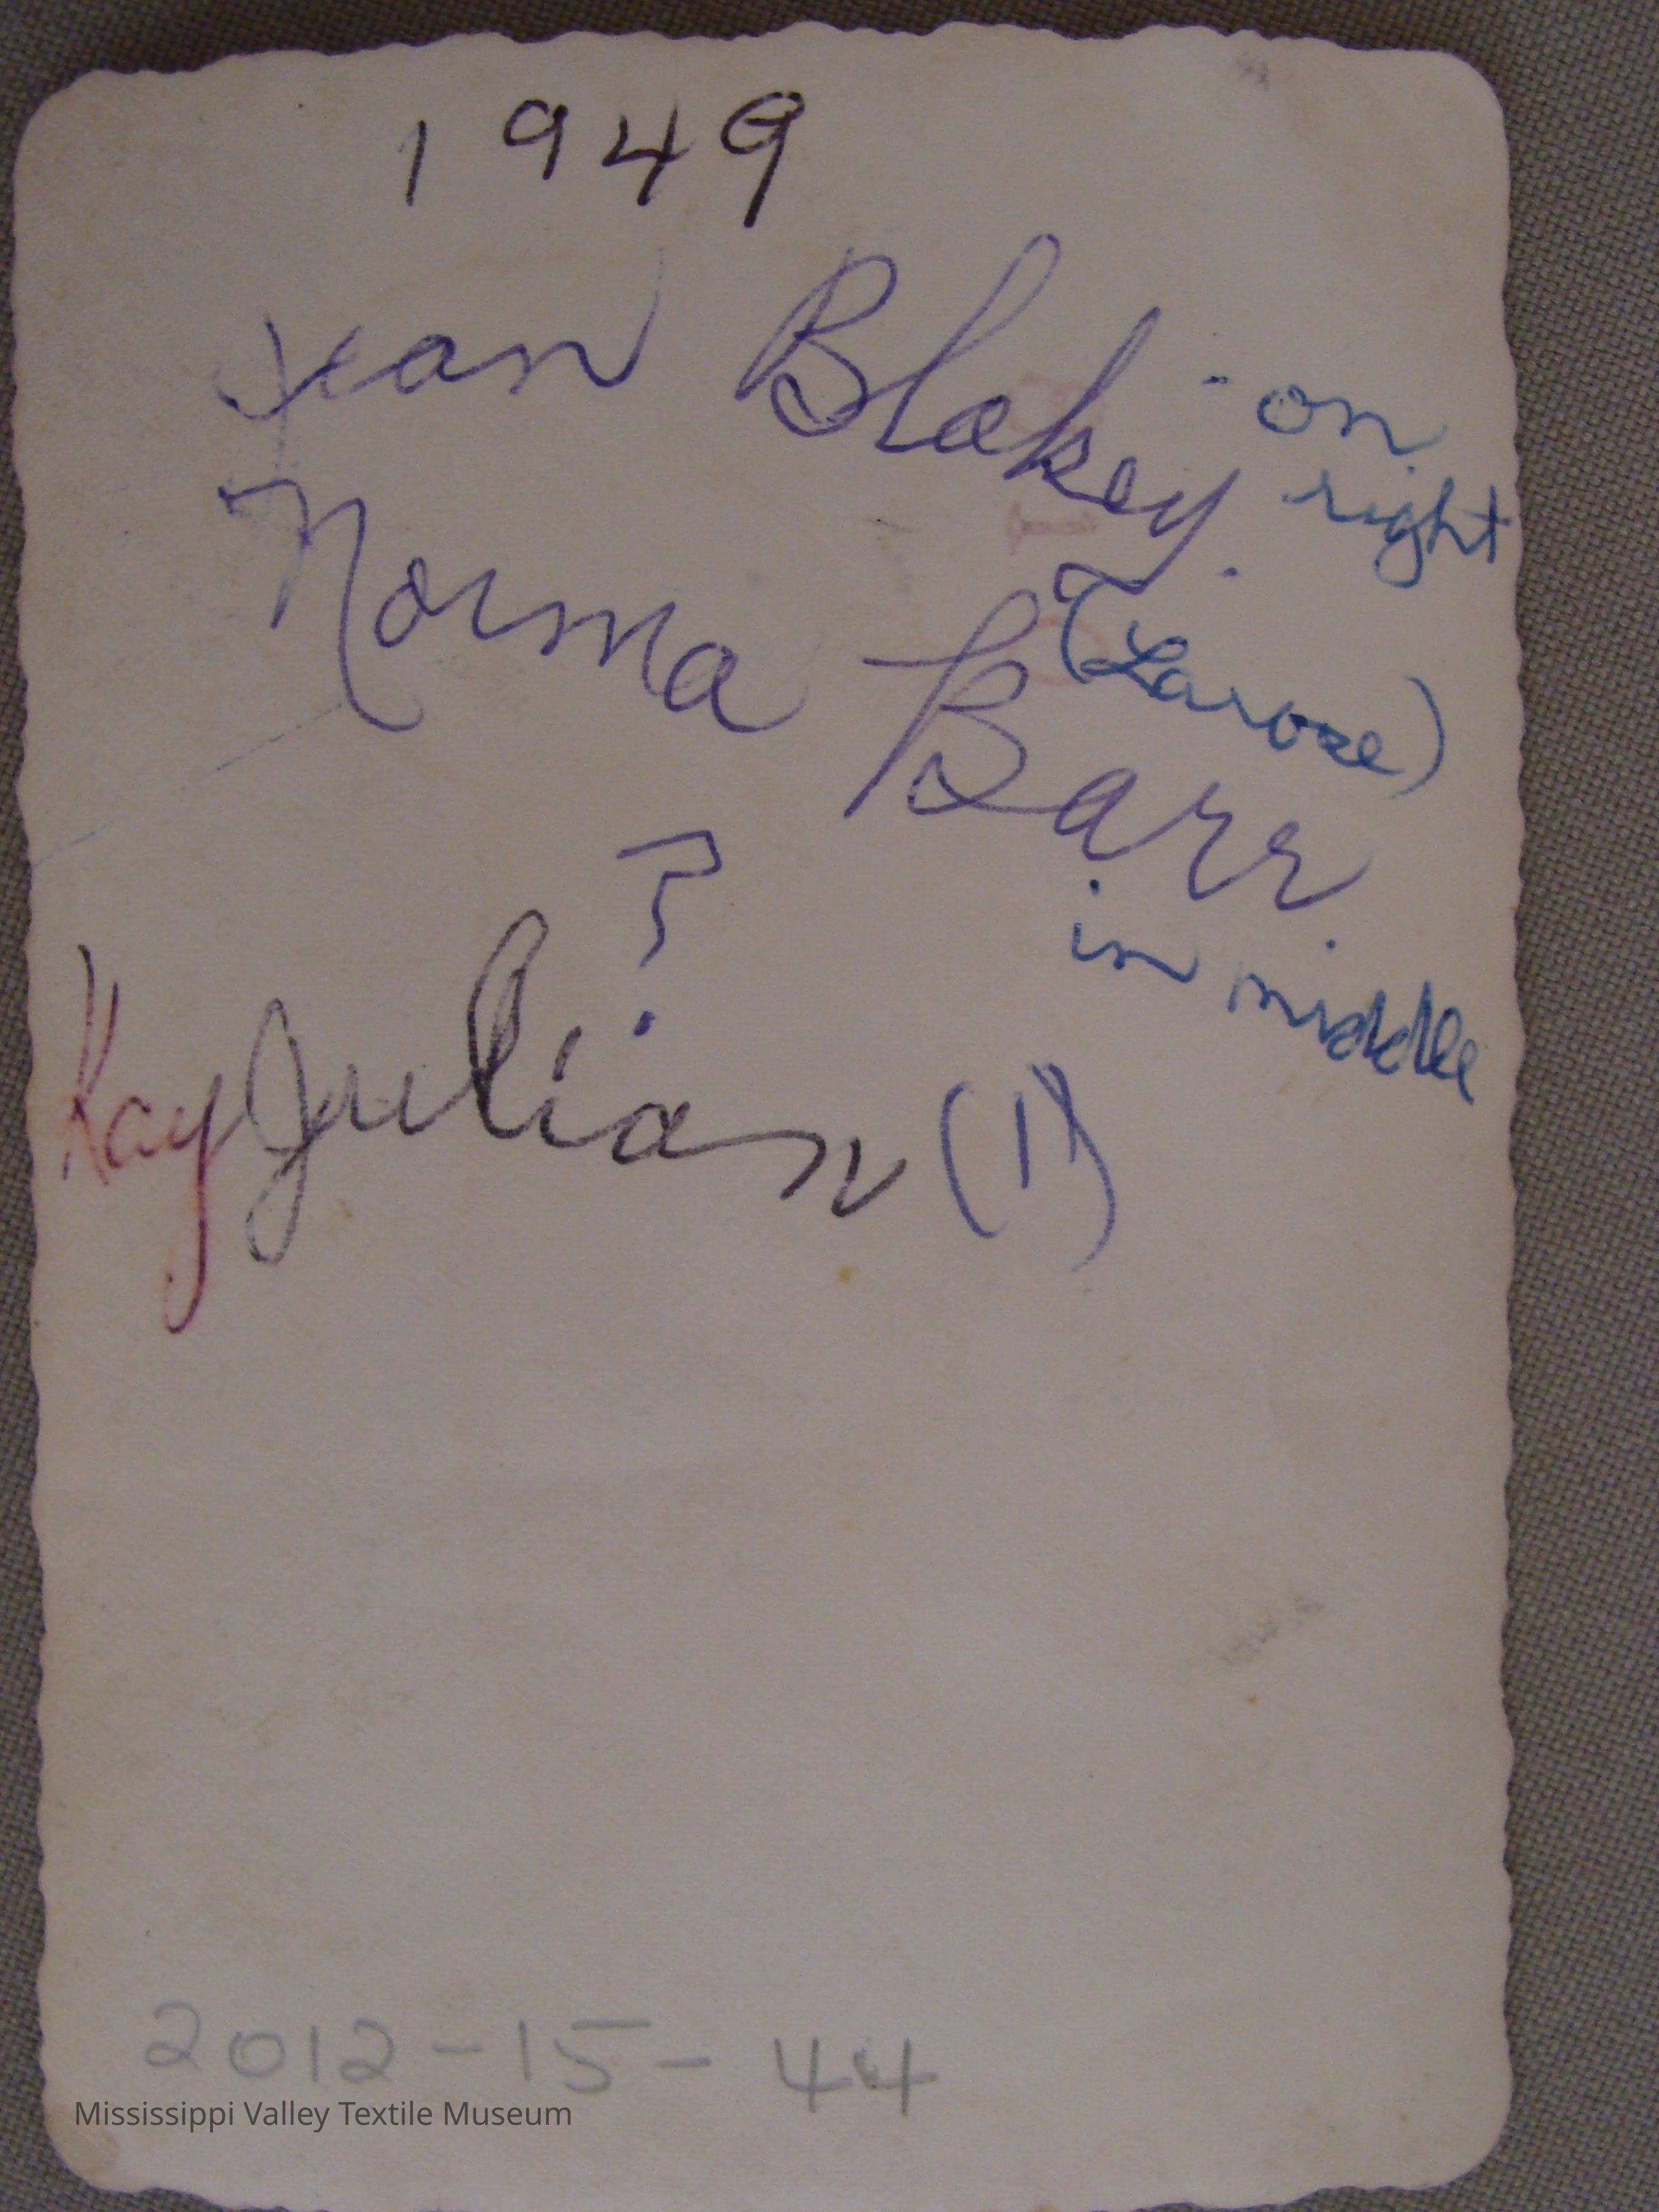 1949
Jean Blakey. - on right
Norma Barr. (Larose)
in middle
?
Kay Julian (1)
2012-15-44
Mississippi Valley Textile Museum